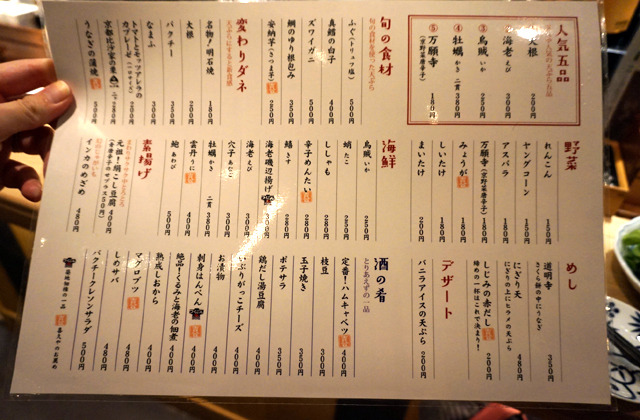 人気五品
① 大根 200円
② 海老 えび 300円
③ 烏賊 いか 250円
④ 牡蠣 かき 二貫 380円
⑤ 万願寺 (京野菜唐辛子) 180円
旬の食材
旬の食材を使った天ぷら
ふぐ(トリュフ塩) 500円
真鱈の白子 400円
ズワイガニ 500円
鯛のゆり根包み 350円
安納芋(さつま芋) 250円
変わりダネ
天ぷらにすると新食感
名物!明石焼 180円
大根 200円
パクチー 350円
なまふ 300円
トマトとモッツァレラの
カプレーゼ
京都北沙室の
うなぎの蒲焼 500円
野菜
れんこん 150円
ヤングコーン 150円
アスパラ 180円
万願寺(京野菜唐辛子) 180円
みょうが 180円
しいたけ 180円
まいたけ 200円
海鮮
烏賊 いか 250円
蛸 たこ 250円
ししゃも 280円
辛子めんたい 280円
鱚 きす 280円
海老磯辺揚げ 300円
海老 えび 300円
穴子 あなご 300円
牡蠣 かき 二貫 380円
雲丹 うに 400円
鮑 あわび 500円
素揚げ
元祖!絹こし豆腐 400円
インカのめざめ 480円
めし
道明寺 350円
さくら餅の中にうなぎ
にぎり天 480円
にぎりの上にヒラメの天ぷら
しじみの赤だし 200円
締めの一杯はこれで決まり!
デザート
バニラアイスの天ぷら 200円
酒の肴
とりあえずの一品
定番!ハムキャベツ 400円
枝豆 300円
玉子焼き 325円
ポテサラ 350円
鶏だし湯豆腐 400円
いぶりがっこチーズ 400円
お漬物 400円
刺身はんぺん 400円
絶品!くるみと海老の佃煮 400円
熟成しおから 400円
マグロブツ 480円
しめサバ 480円
パクチークレソンサラダ 500円